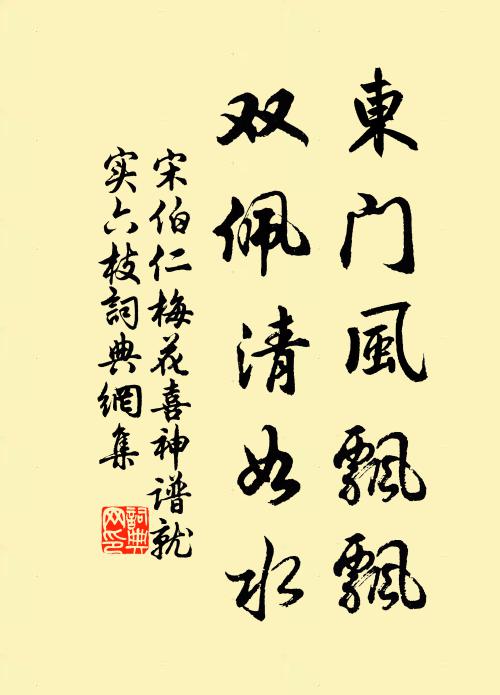 東门風飄飄
双佩清如水
宋伯仁梅花喜神谱就
实六枝詞典網集
詞典网印